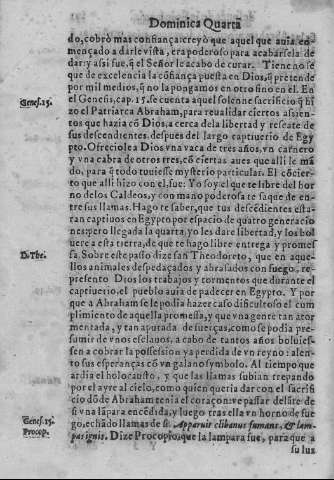 Dominica Quarta
do, cobrò mas confiança: creyò que aquel que auia en-
mençado a darle vista, era poderoso para acabarsela de
dar: y assi fue, q̃ el Señor le acabo de curar. Tiene no se
que de excelencia la cõfiança puesta en Dios, q̃ pretende
por mil medios, q̃ no la pongamos en otro sino en el. En
Genes. 15.
el Genesis, cap. 15. se cuenta aquel solenne sacrificio q̃ hi
zo el Patriarca Abraham, para reualidar ciertos assien-
tos que hazia cõ Dios, acerca de la libertad y rescate de
sus descendientes, despues del largo captiuerio de Egy-
pto. Ofreciole a Dios vna vaca de tres años, vn carnero
y vna cabra de otros tres, cõ ciertas aues que alli le mã
do, para q̃ todo tuuiesse mysterio particular. El cõcier-
to que alli hizo con el, fue: Yo soy el que te libre del hor
no de los Caldeos, y con mano poderosa te saque de en-
tre sus llamas. Hago te saber, que tus descẽdientes esta-
ran captiuos en Egypto por espacio de quatro generacio
nes: pero llegada la quarta, yo les dare libertad, y los bol
uere a esta tierra, de que te hago libre entrega y promes
D. The.
sa. Sobre este passo dize san Theodoreto, que en aque-
llos animales despedaçados y abrasados con fuego, re-
presento Dios los trabajos y tormentos que durante el
captiuerio, el pueblo auia de padecer en Egypto. Y por
que a Abraham se le podia hazer caso dificultoso el cum
plimiento de aquella promessa, y que vna gente tan ator
mentada, y tan apurada de fuerças, como se podia pre-
sumir de vnos esclauos, a cabo de tantos años boluies-
sen a cobrar la possession ya perdida de vn reyno: alen-
to sus esperanças cõ vn galano symbolo. Al tiempo que
ardia el holocausto, y que las llamas subian trepando
por el ayre al cielo, como quien queria dar con el sacrifi
cio dõde Abraham tenia el coraçon: ve passar delãte de
Genes. 15.
si vna lãpara encẽdida, y luego tras ella vn horno de fue
Procop.
go, echãdo llamas de si. Apparuit clibanus fumans, & lam-
pas ignis. Dize Procopio, que la lampara fue, para que a
su luz